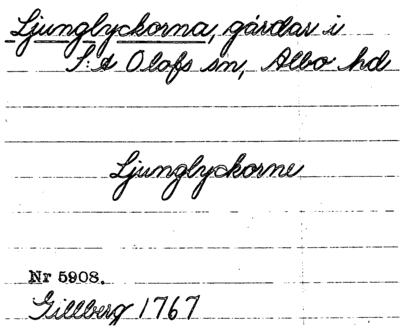 Ljunglyckorna, gårdar i
S:t Olafs sn, Albo hd
Ljunglyckorne
Nr 5908.
Gillberg 1767